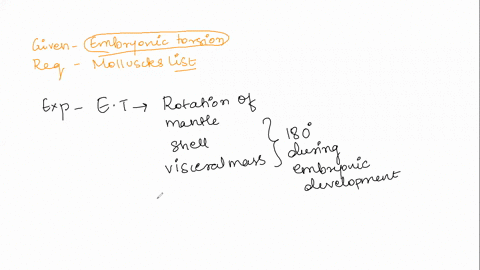 Given- Embryonic torsion
Req - Molluscks List
Exp - E.T → Rotation of
mantle
shell
visceral mass
180°
during
embryonic
development